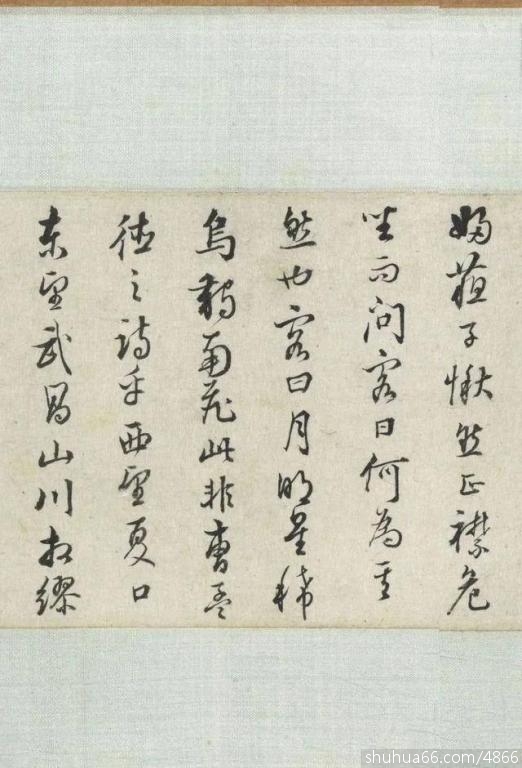 婦蘇子愀然正襟危
坐而问客曰何為其
然也客曰月明星稀
烏鵲南飛此非曹孟
德之诗乎西望夏口
東望武昌山川相繆
shuhua66.com/4866